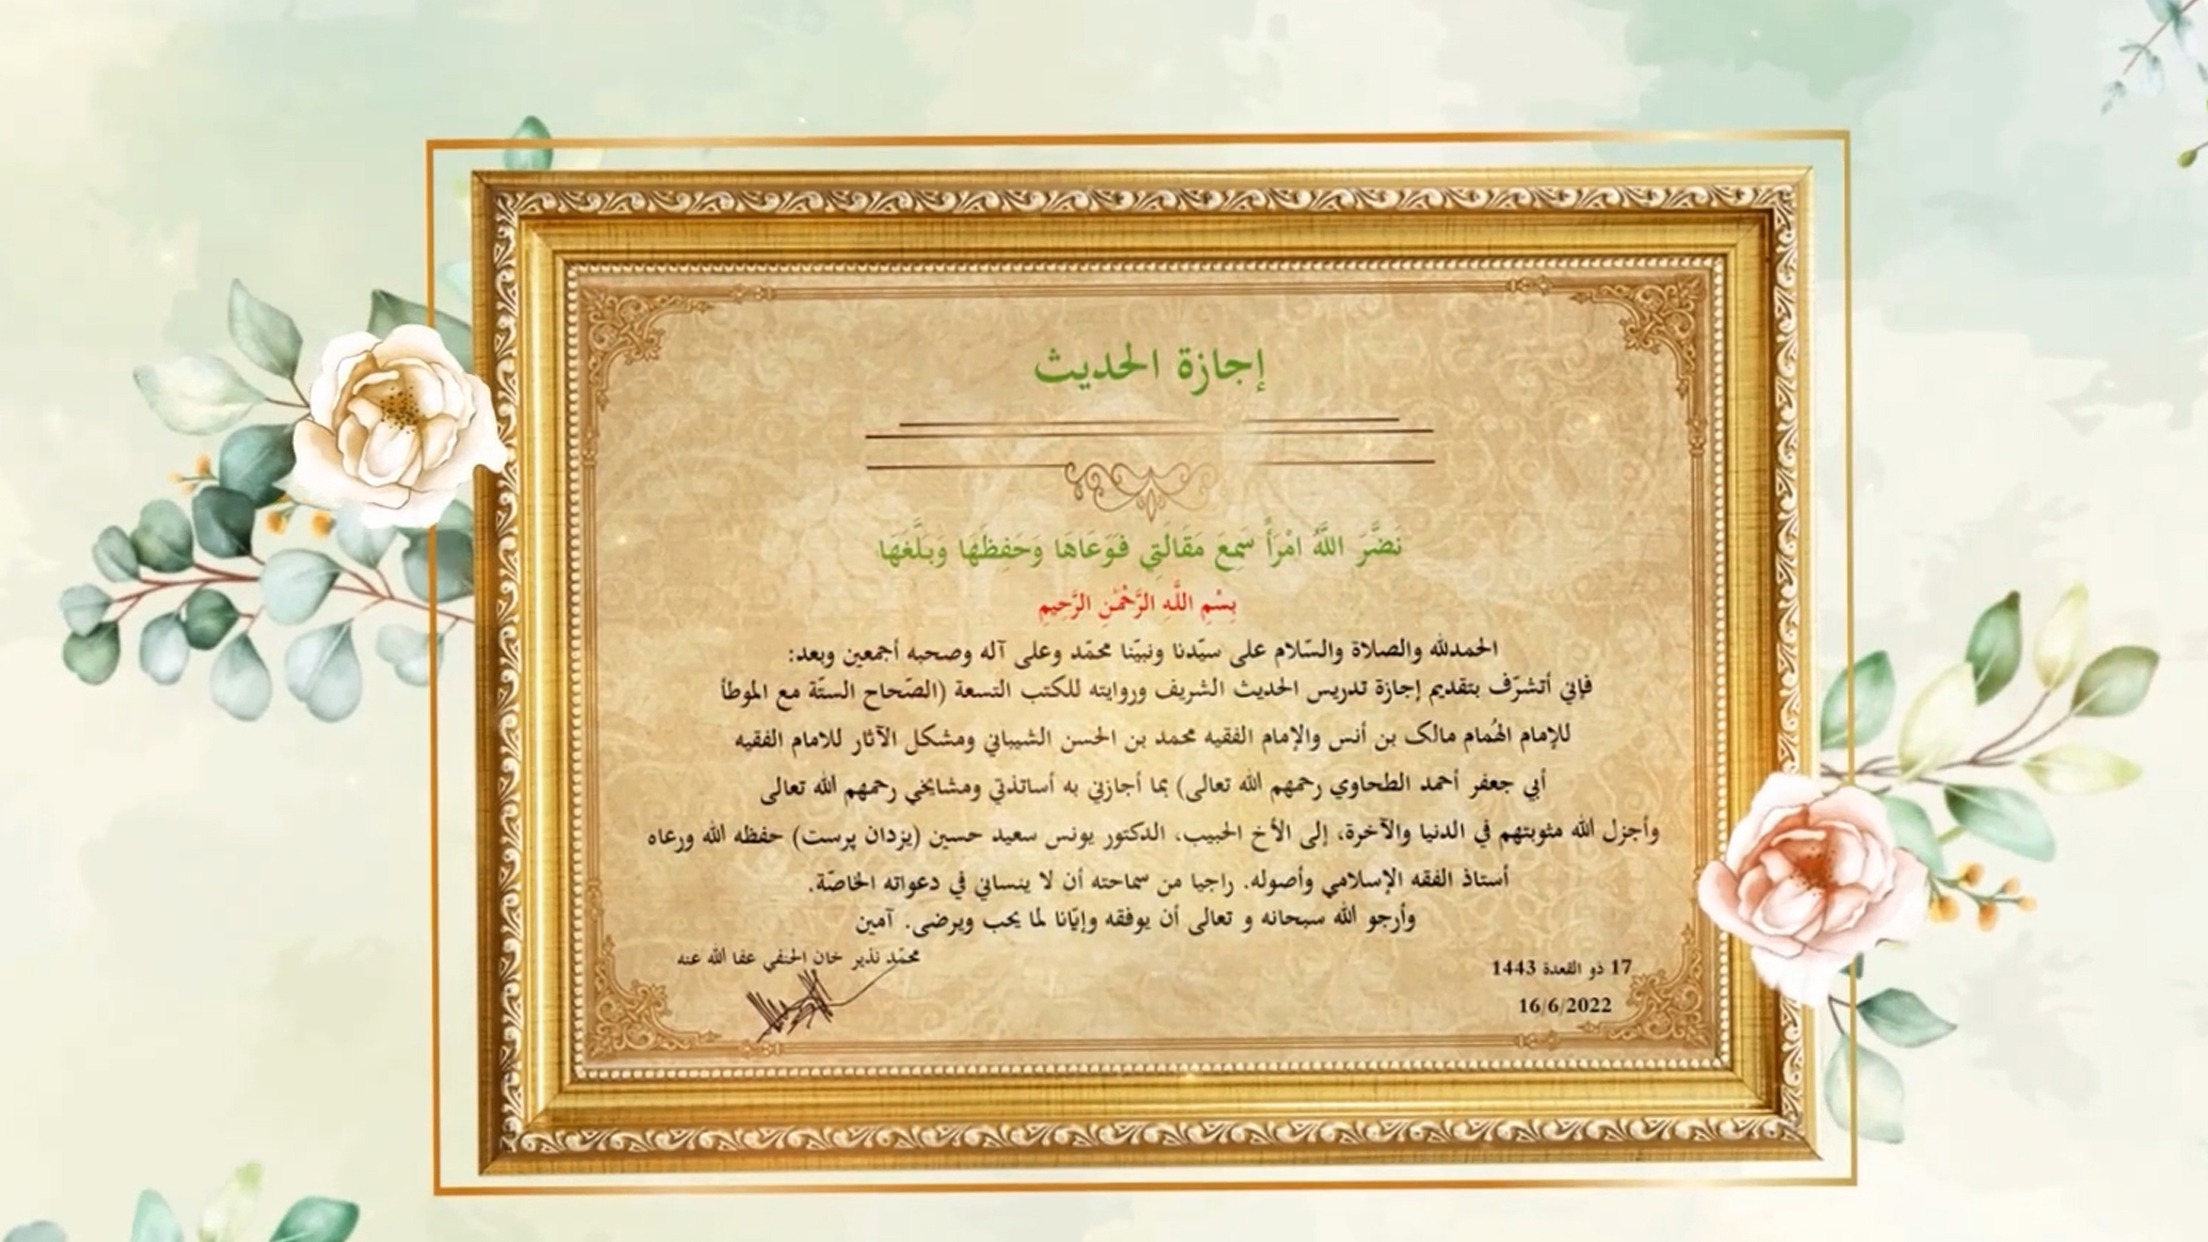 إجازة الحديث
نَضَّرَ اللَّهُ امْرَأً سَمِعَ مَقَالَتِي فَوَعَاهَا وَحَفِظَهَا وَبَلَّغَهَا
بِسْمِ اللَّهِ الرَّحْمَٰنِ الرَّحِيمِ
الحمدلله والصلاة والسّلام على سيّدنا ونبيّنا محمّد وعلى آله وصحبه أجمعين وبعد:
فإني أتشرّف بتقديم إجازة تدريس الحديث الشريف وروايته للكتب التسعة (الصّحاح الستّة مع الموطأ
للإمام الهُمام مالک بن أنس والإمام الفقيه محمد بن الحسن الشيباني ومشكل الآثار للامام الفقيه
أبي جعفر أحمد الطحاوي رحمهم الله تعالى) بما أجازني به أساتذتي ومشايخي رحمهم الله تعالى
وأجزل الله مثوبتهم في الدنيا والآخرة، إلى الأخ الحبيب، الدكتور يونس سعيد حسين (يزدان پرست) حفظه الله ورعاه
أستاذ الفقه الإسلامي وأصوله. راجيا من سماحته أن لا ينساني في دعواته الخاصّة.
وأرجو الله سبحانه و تعالى أن يوفقه وإيّانا لما يحب ويرضى. آمين
17 ذو القعدة 1443
16/6/2022
محمّد نذير خان الحنفي عفا الله عنه